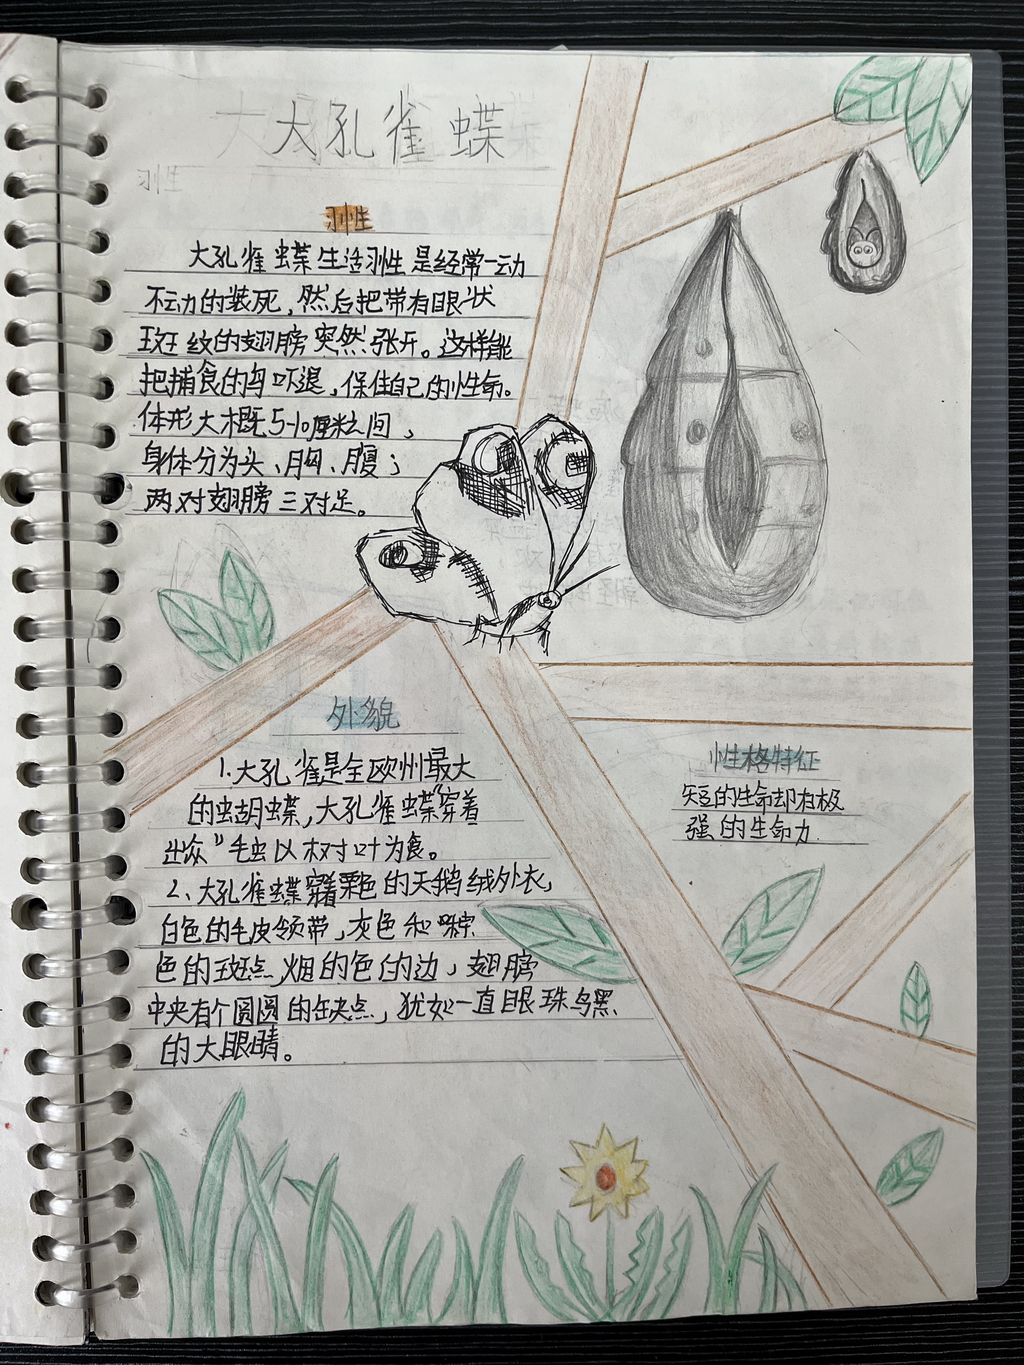 大孔雀蝶
习性
大孔雀蝶生活习性是经常一动
不动的装死,然后把带有眼状
斑纹的翅膀突然张开。这样能
把捕食的鸟吓退,保住自己的性命。
体形大概5-10厘米之间,
身体分为头、胸、腹;
两对翅膀三对足。
外貌
1.大孔雀是全欧州最大
的蝴蝶,大孔雀蝶“穿着
出众”毛虫以杏树叶为食。
2、大孔雀蝶穿着栗色的天鹅绒外衣,
白色的毛皮领带,灰色和棕
色的斑点,烟的色的边,翅膀
中央有个圆圆的缺点,犹如一直眼珠乌黑
的大眼睛。
性格特征
短的生命却有极
强的生命力.